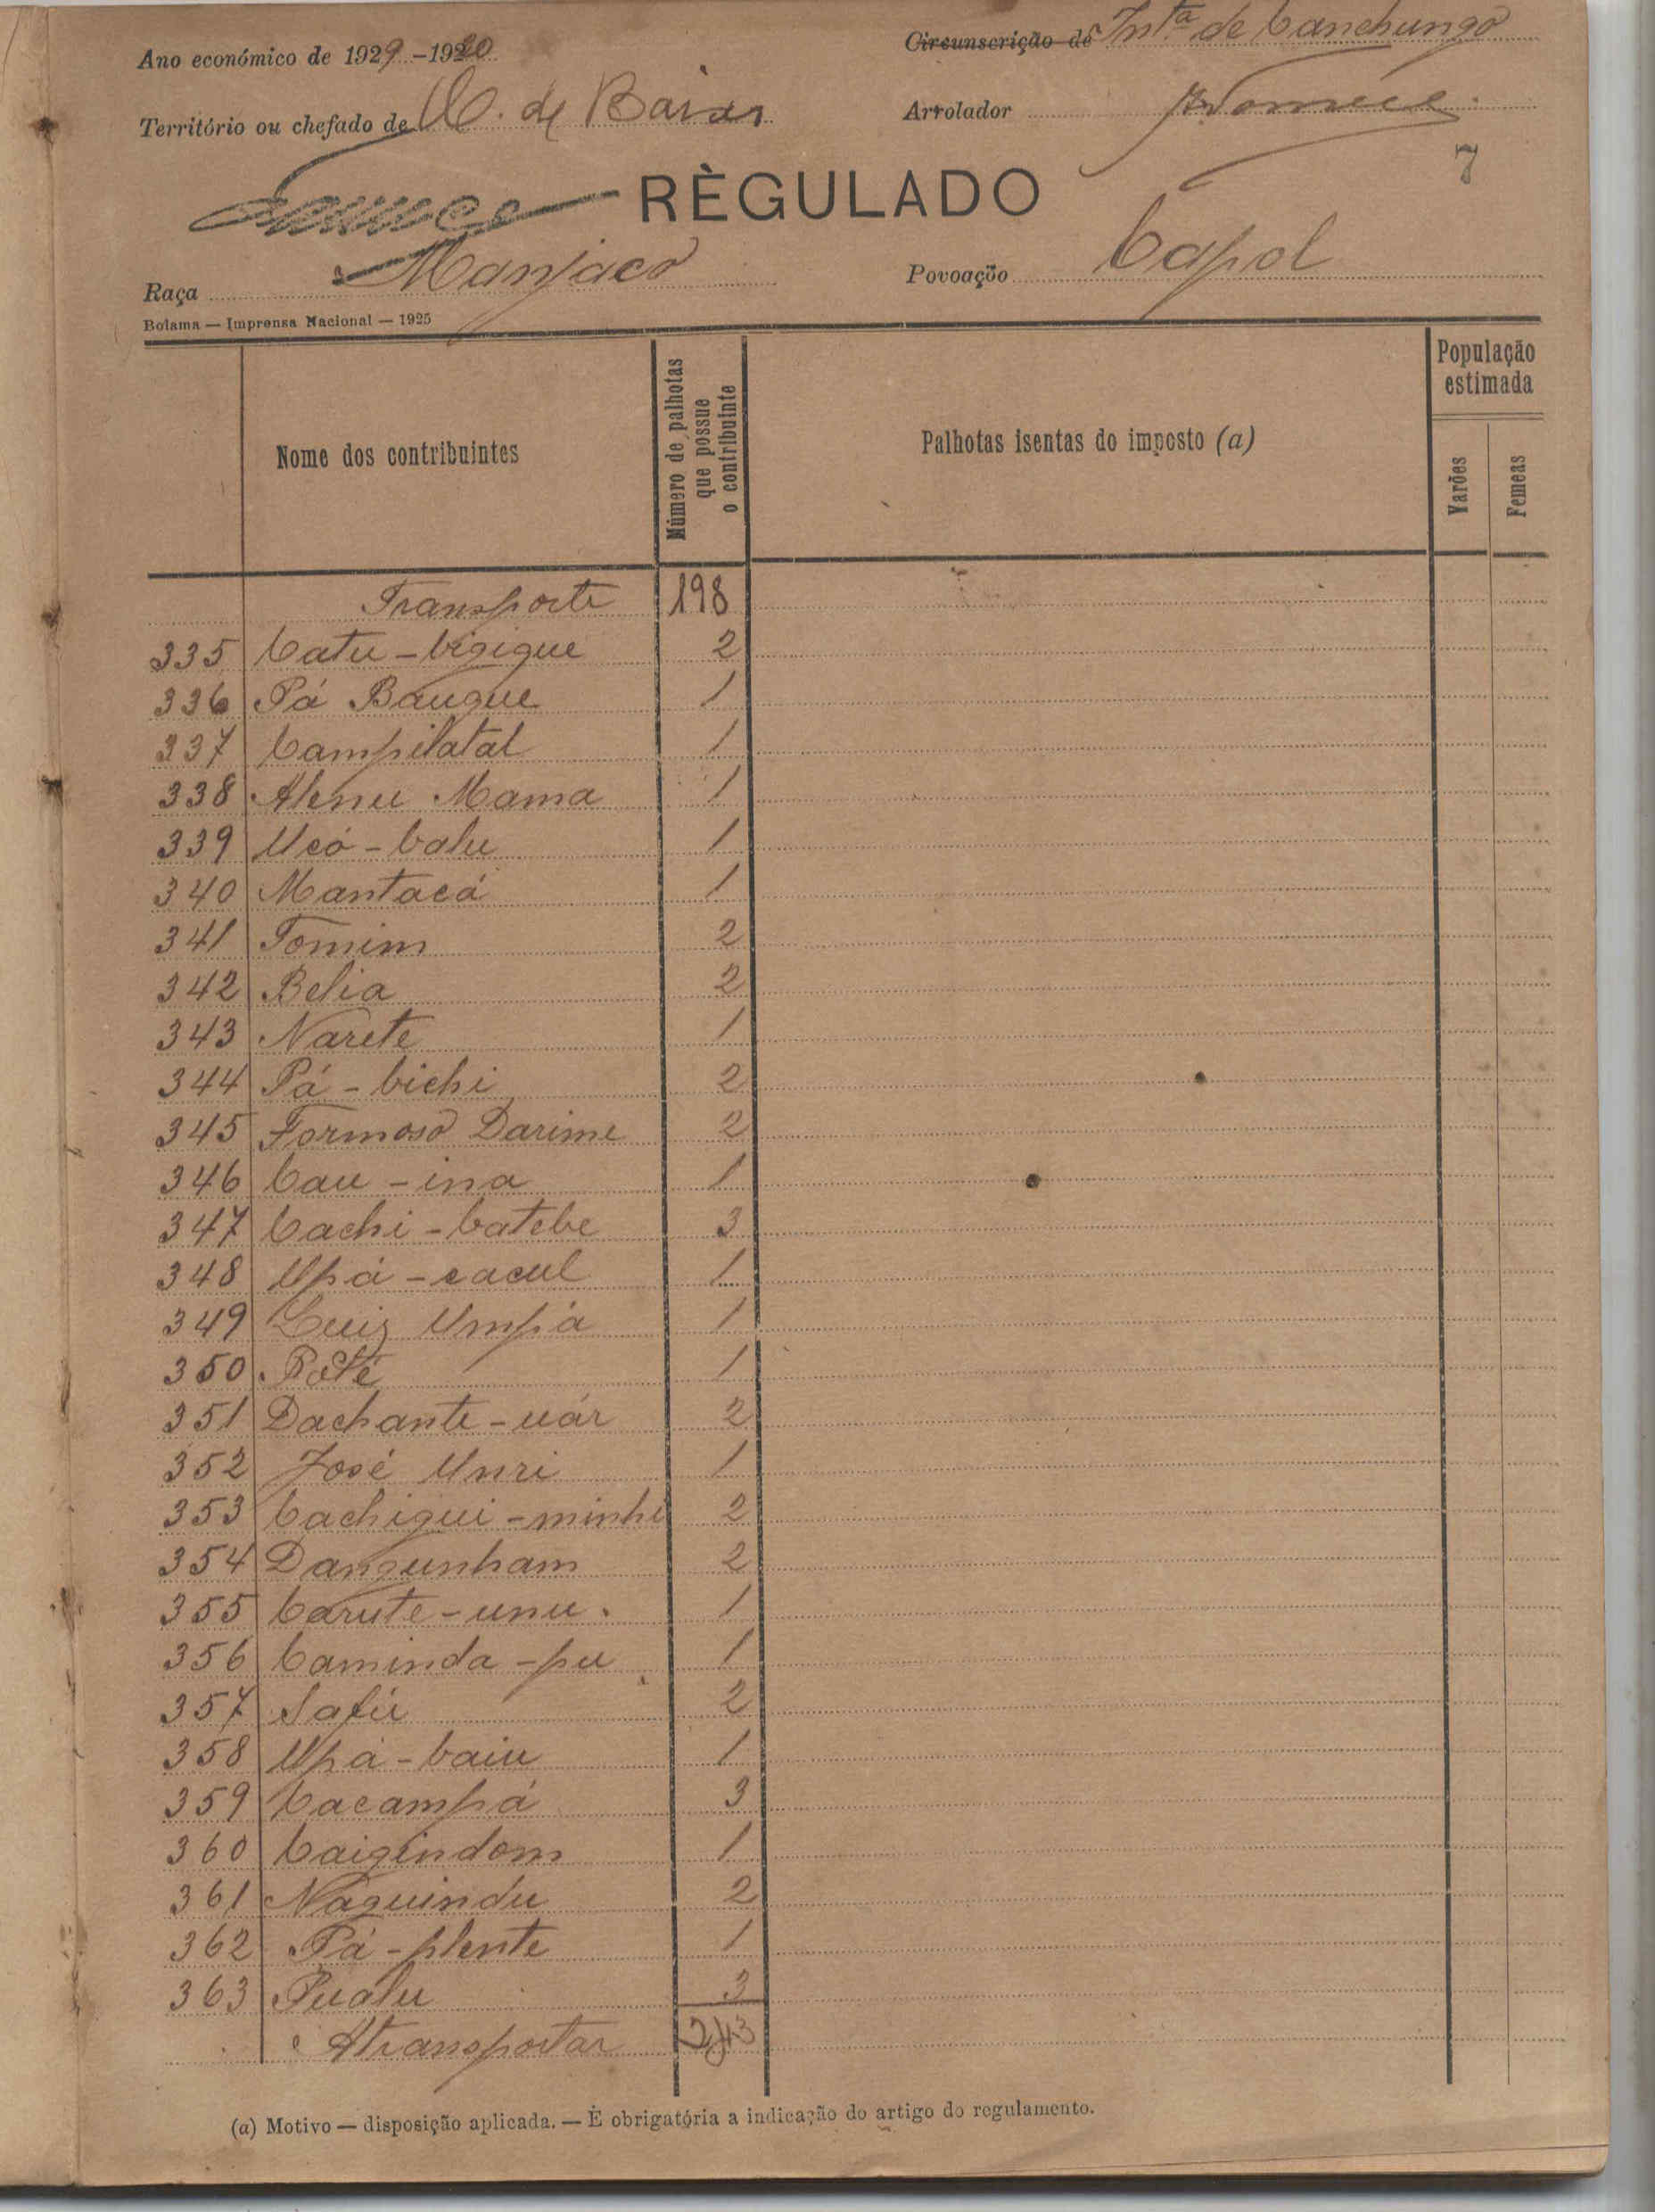 Ano económico de 1929-1930
Circunscrição de Intª de Canchungo
Território ou chefado de C. de Baixo
Arrolador
7
RÈGULADO
Raça Manjaco
Povoação Capol
Bolama — Imprensa Nacional — 1925
Nome dos contribuintes
Número de palhotas que possue o contribuinte
Palhotas isentas do imposto (a)
População estimada
Varões
Femeas
Transporte 198
335 Catu-bigique 2
336 Pá Baugue 1
337 Campilatal 1
338 Alenu Mama 1
339 Ucó-balu 1
340 Mantacá 1
341 Tomim 2
342 Belia 2
343 Narete 1
344 Pá-bichi 2
345 Formoso Darime 2
346 Cau-ina 1
347 Cachi-batebe 3
348 Upá-cacul 1
349 Luiz Umpá 1
350 Poté 1
351 Dachante-uár 2
352 José Unri 1
353 Cachigui-minhi 2
354 Dangunham 2
355 Carute-unu 1
356 Caminda-pu 1
357 Safú 2
358 Upá-baiu 1
359 Cacampá 3
360 Caigindom 1
361 Naguindu 2
362 Pá-plente 1
363 Pualu 3
Atransportar 243
(a) Motivo — disposição aplicada. — È obrigatória a indicação do artigo do regulamento.